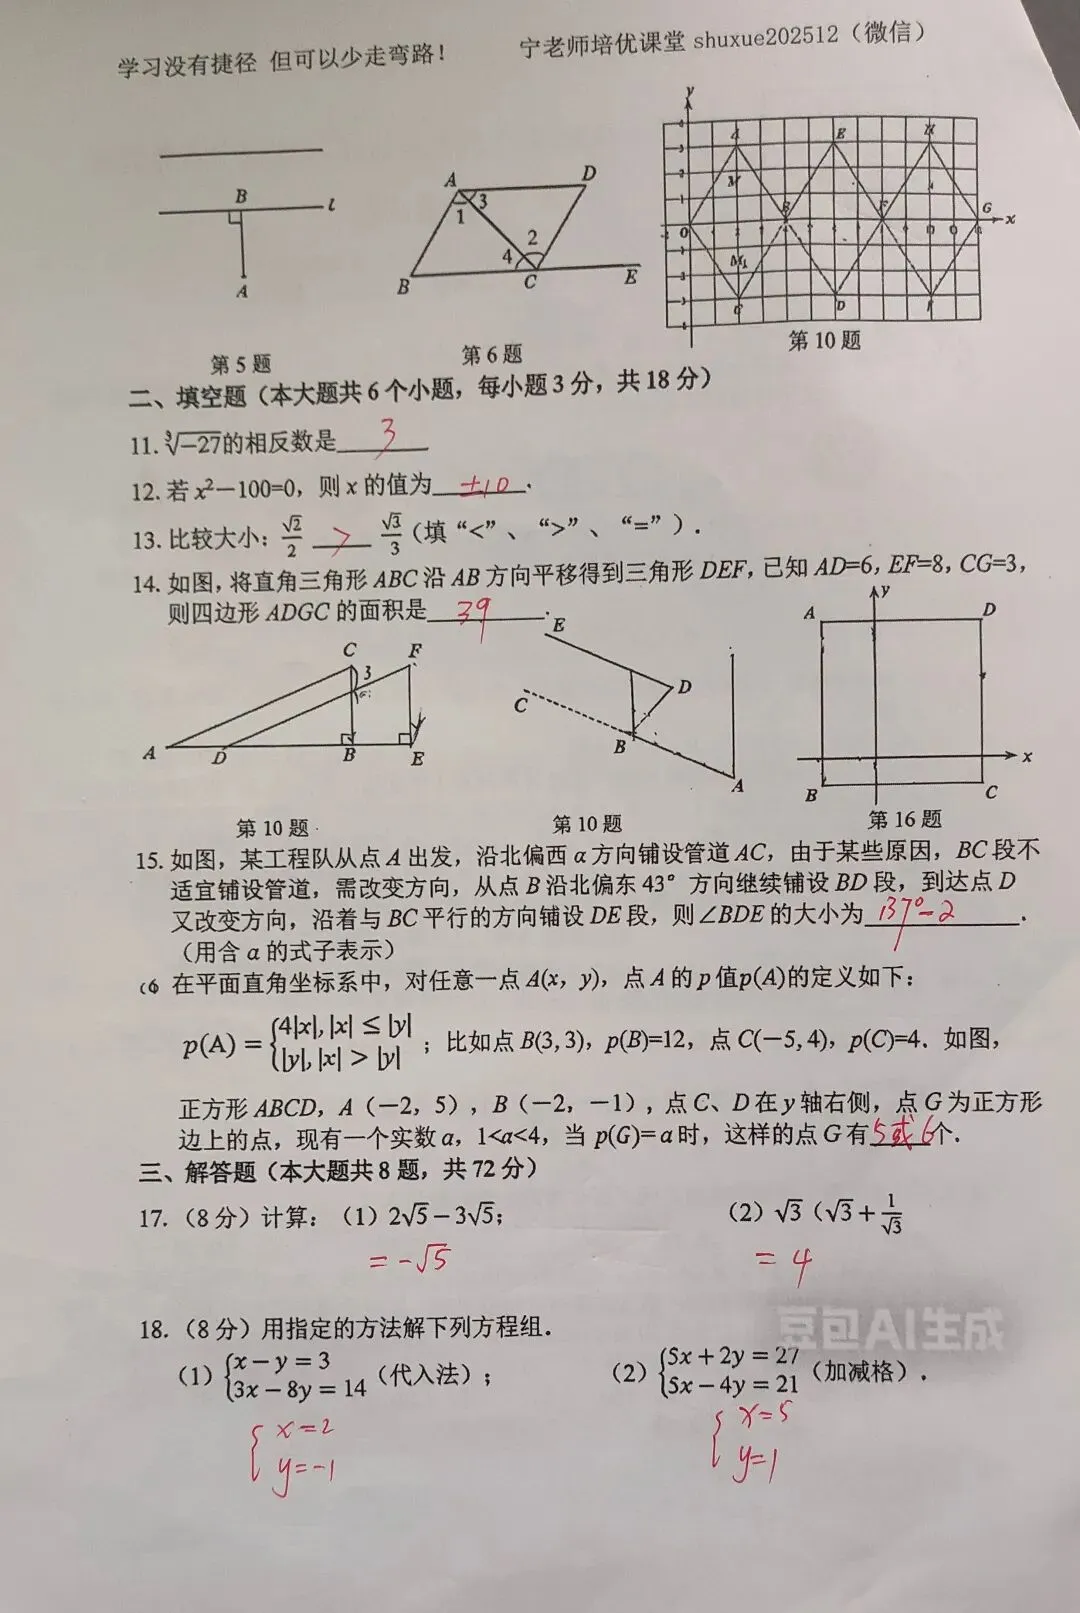 学习没有捷径 但可以少走弯路！ 宁老师培优课堂 shuxue202512（微信）
B l
A
第5题
A D
1 3
2
4
B C E
第6题
y
4
3
2
1
A E H
M
O B F G x
M₁
C D
第10题
二、填空题（本大题共6个小题，每小题3分，共18分）
11. ∛−27的相反数是 3
12. 若 x²−100=0，则 x 的值为 ±10 .
13. 比较大小：√2/2 > √3/3（填“<”、“>”、“=”）.
14. 如图，将直角三角形 ABC 沿 AB 方向平移得到三角形 DEF，已知 AD=6，EF=8，CG=3，
则四边形 ADGC 的面积是 39 .
C F
3
G
A D B E
第10题
E
D
C
B
A
第10题
y
A D
x
B C
第16题
15. 如图，某工程队从点 A 出发，沿北偏西 α 方向铺设管道 AC，由于某些原因，BC 段不
适宜铺设管道，需改变方向，从点 B 沿北偏东 43° 方向继续铺设 BD 段，到达点 D
又改变方向，沿着与 BC 平行的方向铺设 DE 段，则∠BDE 的大小为 137°−2 .
（用含 α 的式子表示）
16 在平面直角坐标系中，对任意一点 A(x，y)，点 A 的 p 值p(A)的定义如下：
p(A) = {4|x|, |x| ≤ |y|
|y|, |x| > |y| ；比如点 B(3, 3)，p(B)=12，点 C(−5, 4)，p(C)=4. 如图，
正方形 ABCD，A（−2，5），B（−2，−1），点 C、D 在 y 轴右侧，点 G 为正方形
边上的点，现有一个实数 a，1<a<4，当 p(G)= a 时，这样的点 G 有 5或6 个.
三、解答题（本大题共8题，共72分）
17.（8分）计算：（1）2√5－3√5； （2）√3（√3＋1/√3
=−√5 = 4
豆包AI生成
18.（8分）用指定的方法解下列方程组.
（1）{x − y = 3
3x − 8y = 14（代入法）； （2）{5x + 2y = 27
5x − 4y = 21（加减格）.
{x=2
y=−1
{x=5
y=1